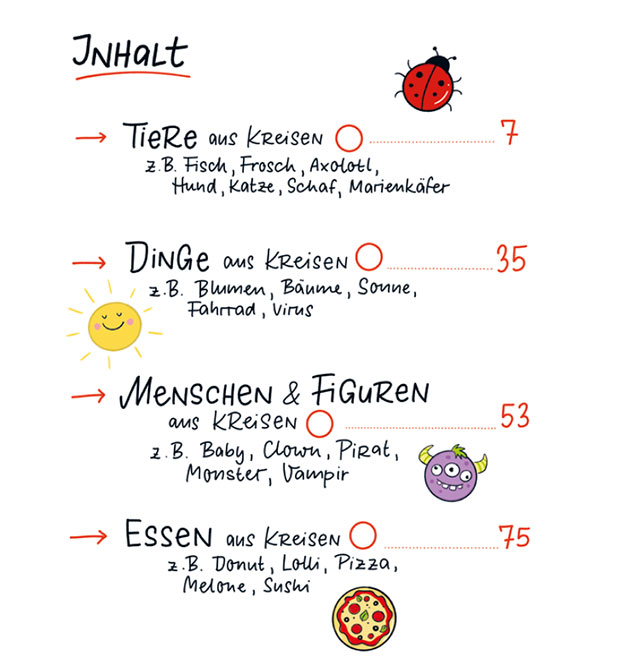 INHALT
→ TIERE aus KREISEN ○ 7
z.B. Fisch, Frosch, Axolotl,
Hund, Katze, Schaf, Marienkäfer
→ DINGE aus KREISEN ○ 35
z.B. Blumen, Bäume, Sonne,
Fahrrad, Virus
→ MENSCHEN & FIGUREN
aus KREISEN ○ 53
z.B. Baby, Clown, Pirat,
Monster, Vampir
→ ESSEN aus KREISEN ○ 75
z.B. Donut, Lolli, Pizza,
Melone, Sushi